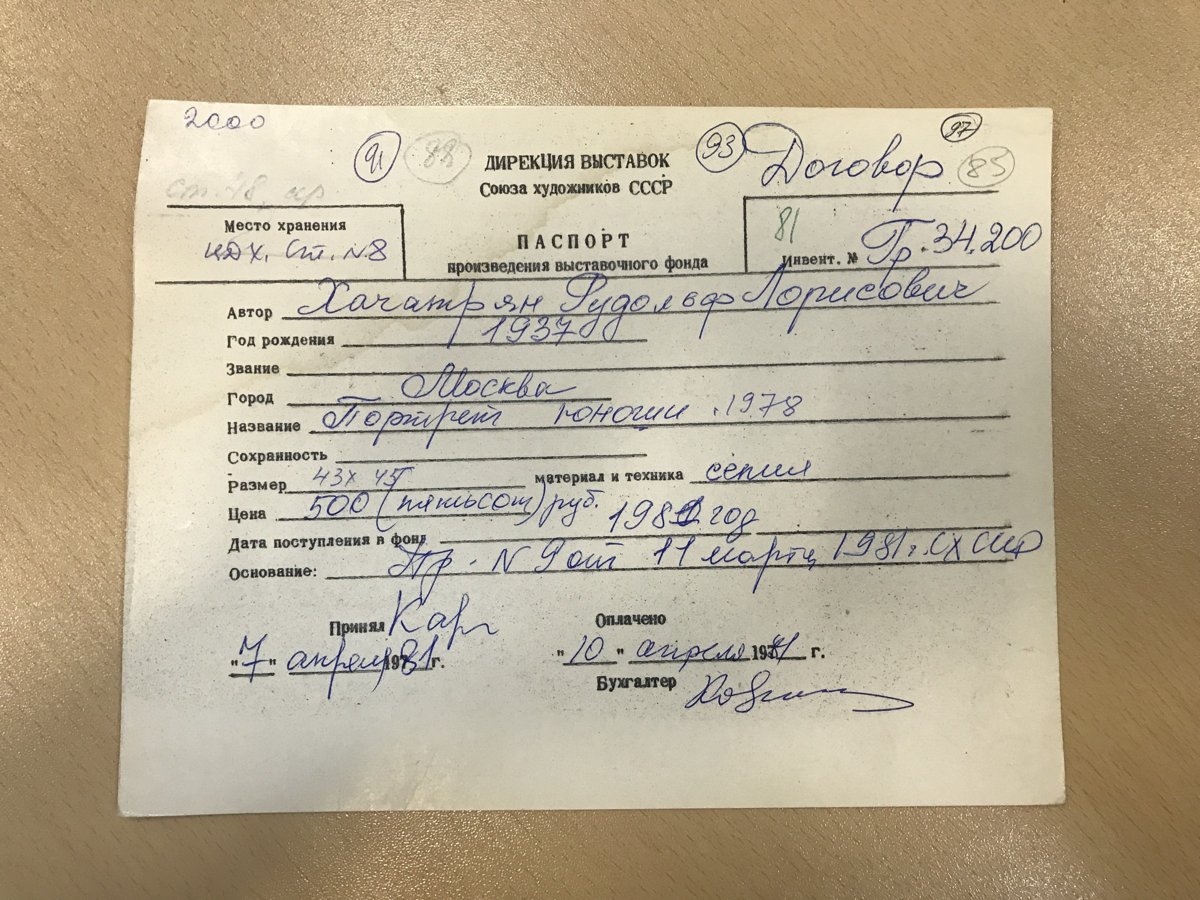 2000
91 88 93 Договор 97 85
ДИРЕКЦИЯ ВЫСТАВОК
Союза художников СССР
Место хранения
ЦДХ. Ст. N.8
ПАСПОРТ
произведения выставочного фонда
81
Инвент. № Гр.34.200
Автор Хачатрян Рудольф Лорисович
Год рождения 1937
Звание
Город Москва
Название Портрет юноши . 1978
Сохранность
Размер 43х45 материал и техника сепия
Цена 500 (пятьсот) руб.
Дата поступления в фонд 1981 год
Основание: Пр. N 9 от 11 марта 1981г. СХ СССР
Принял
Оплачено
"7" апреля 1981г.
"10" апреля 1981 г.
Бухгалтер